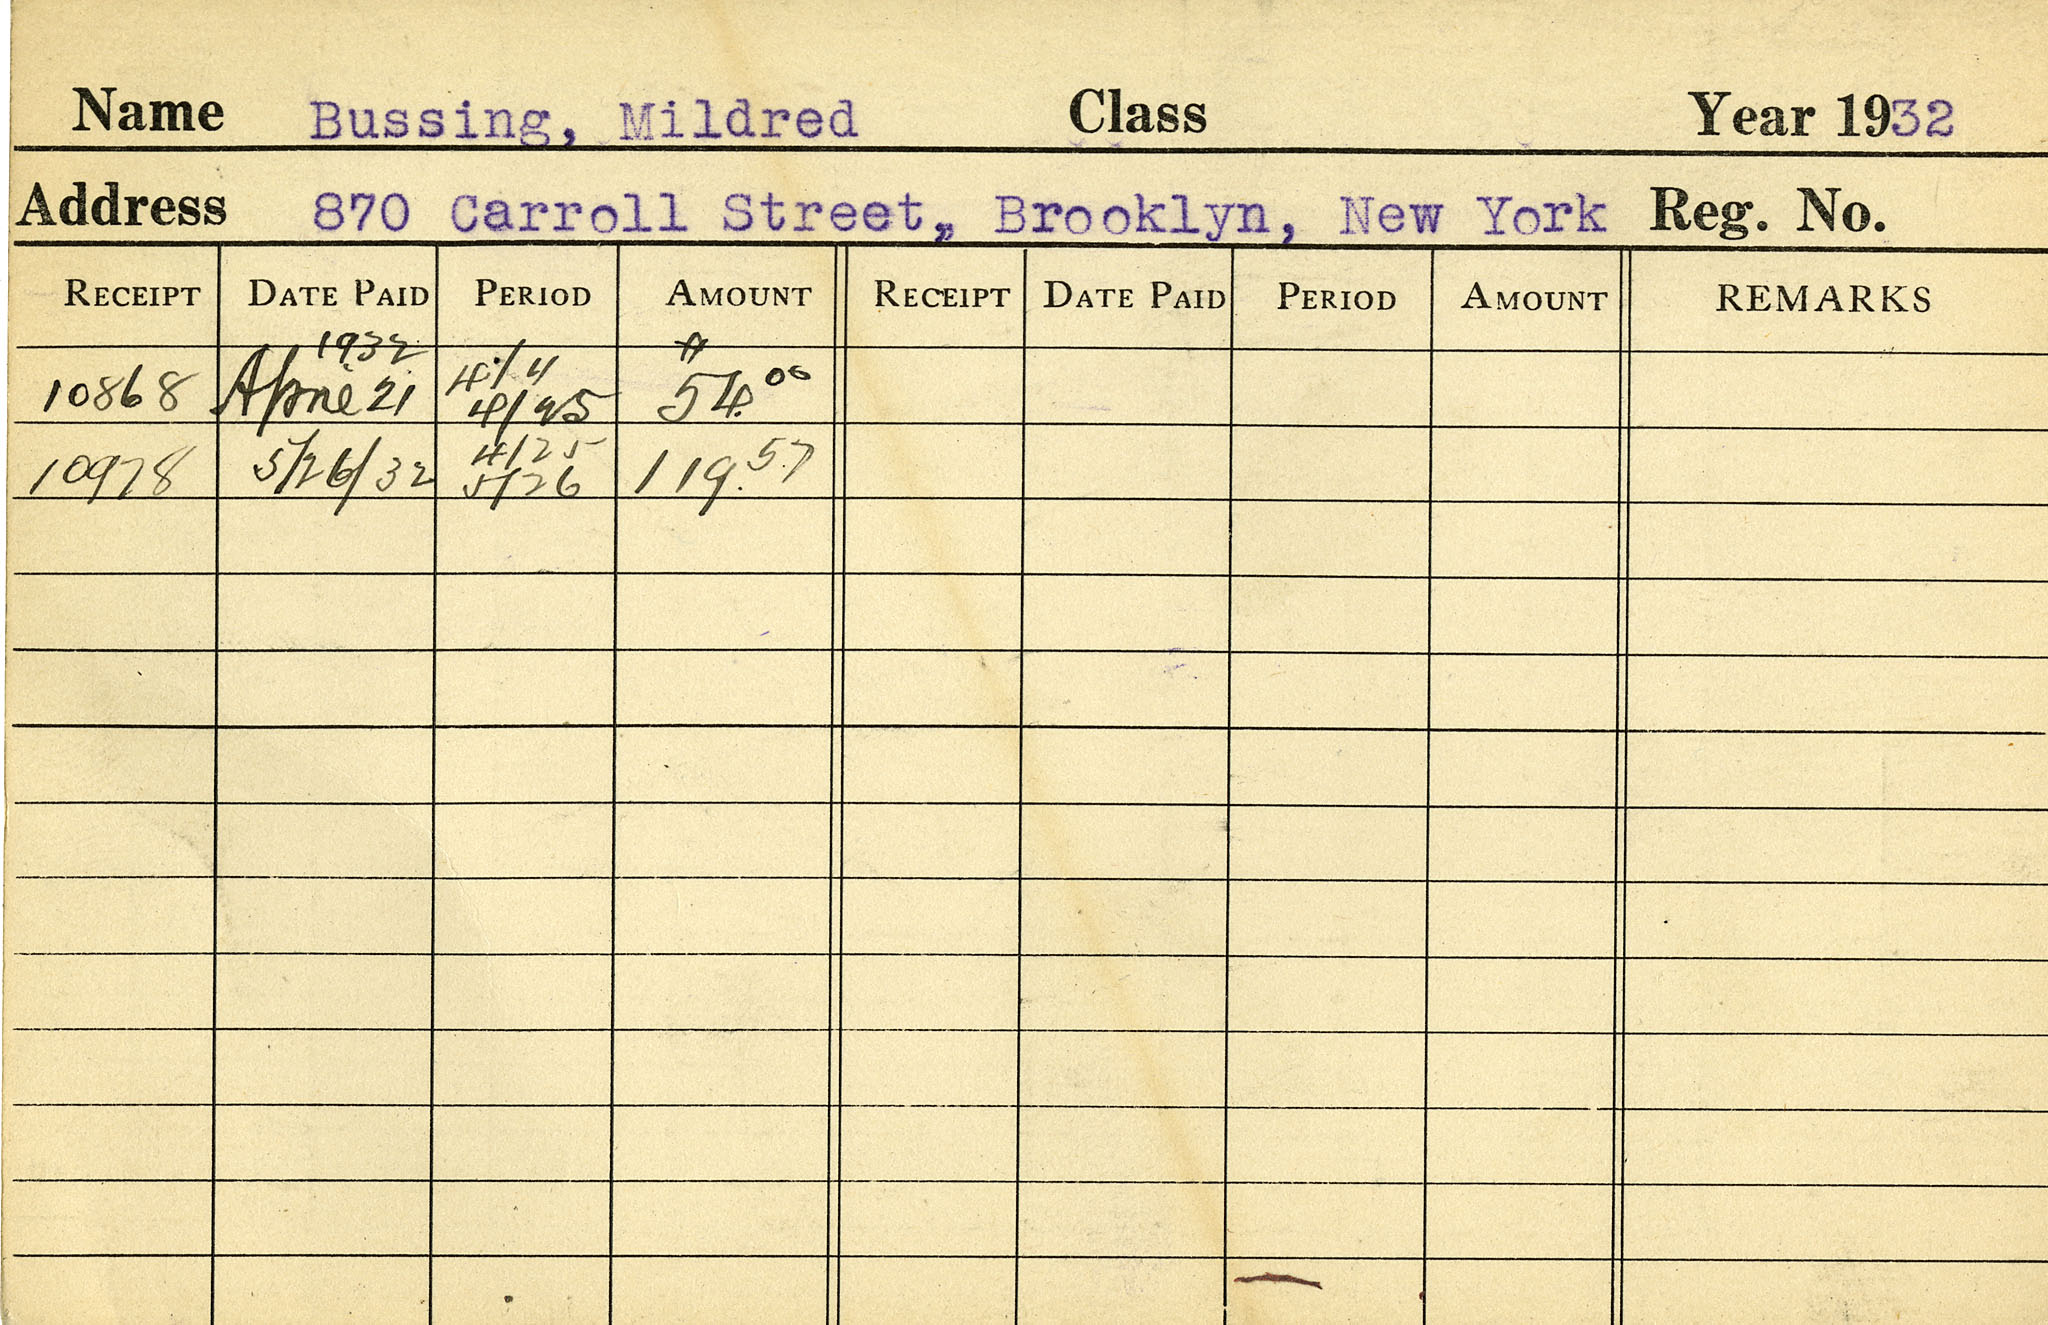 Name Bussing, Mildred Class Year 1932
Address 870 Carroll Street,, Brooklyn, New York Reg. No.
RECEIPT DATE PAID PERIOD AMOUNT RECEIPT DATE PAID PERIOD AMOUNT REMARKS
1932 4/4 $
10868 21 4/25 54.00
10978 5/26/32 4/25 119.57
5/26